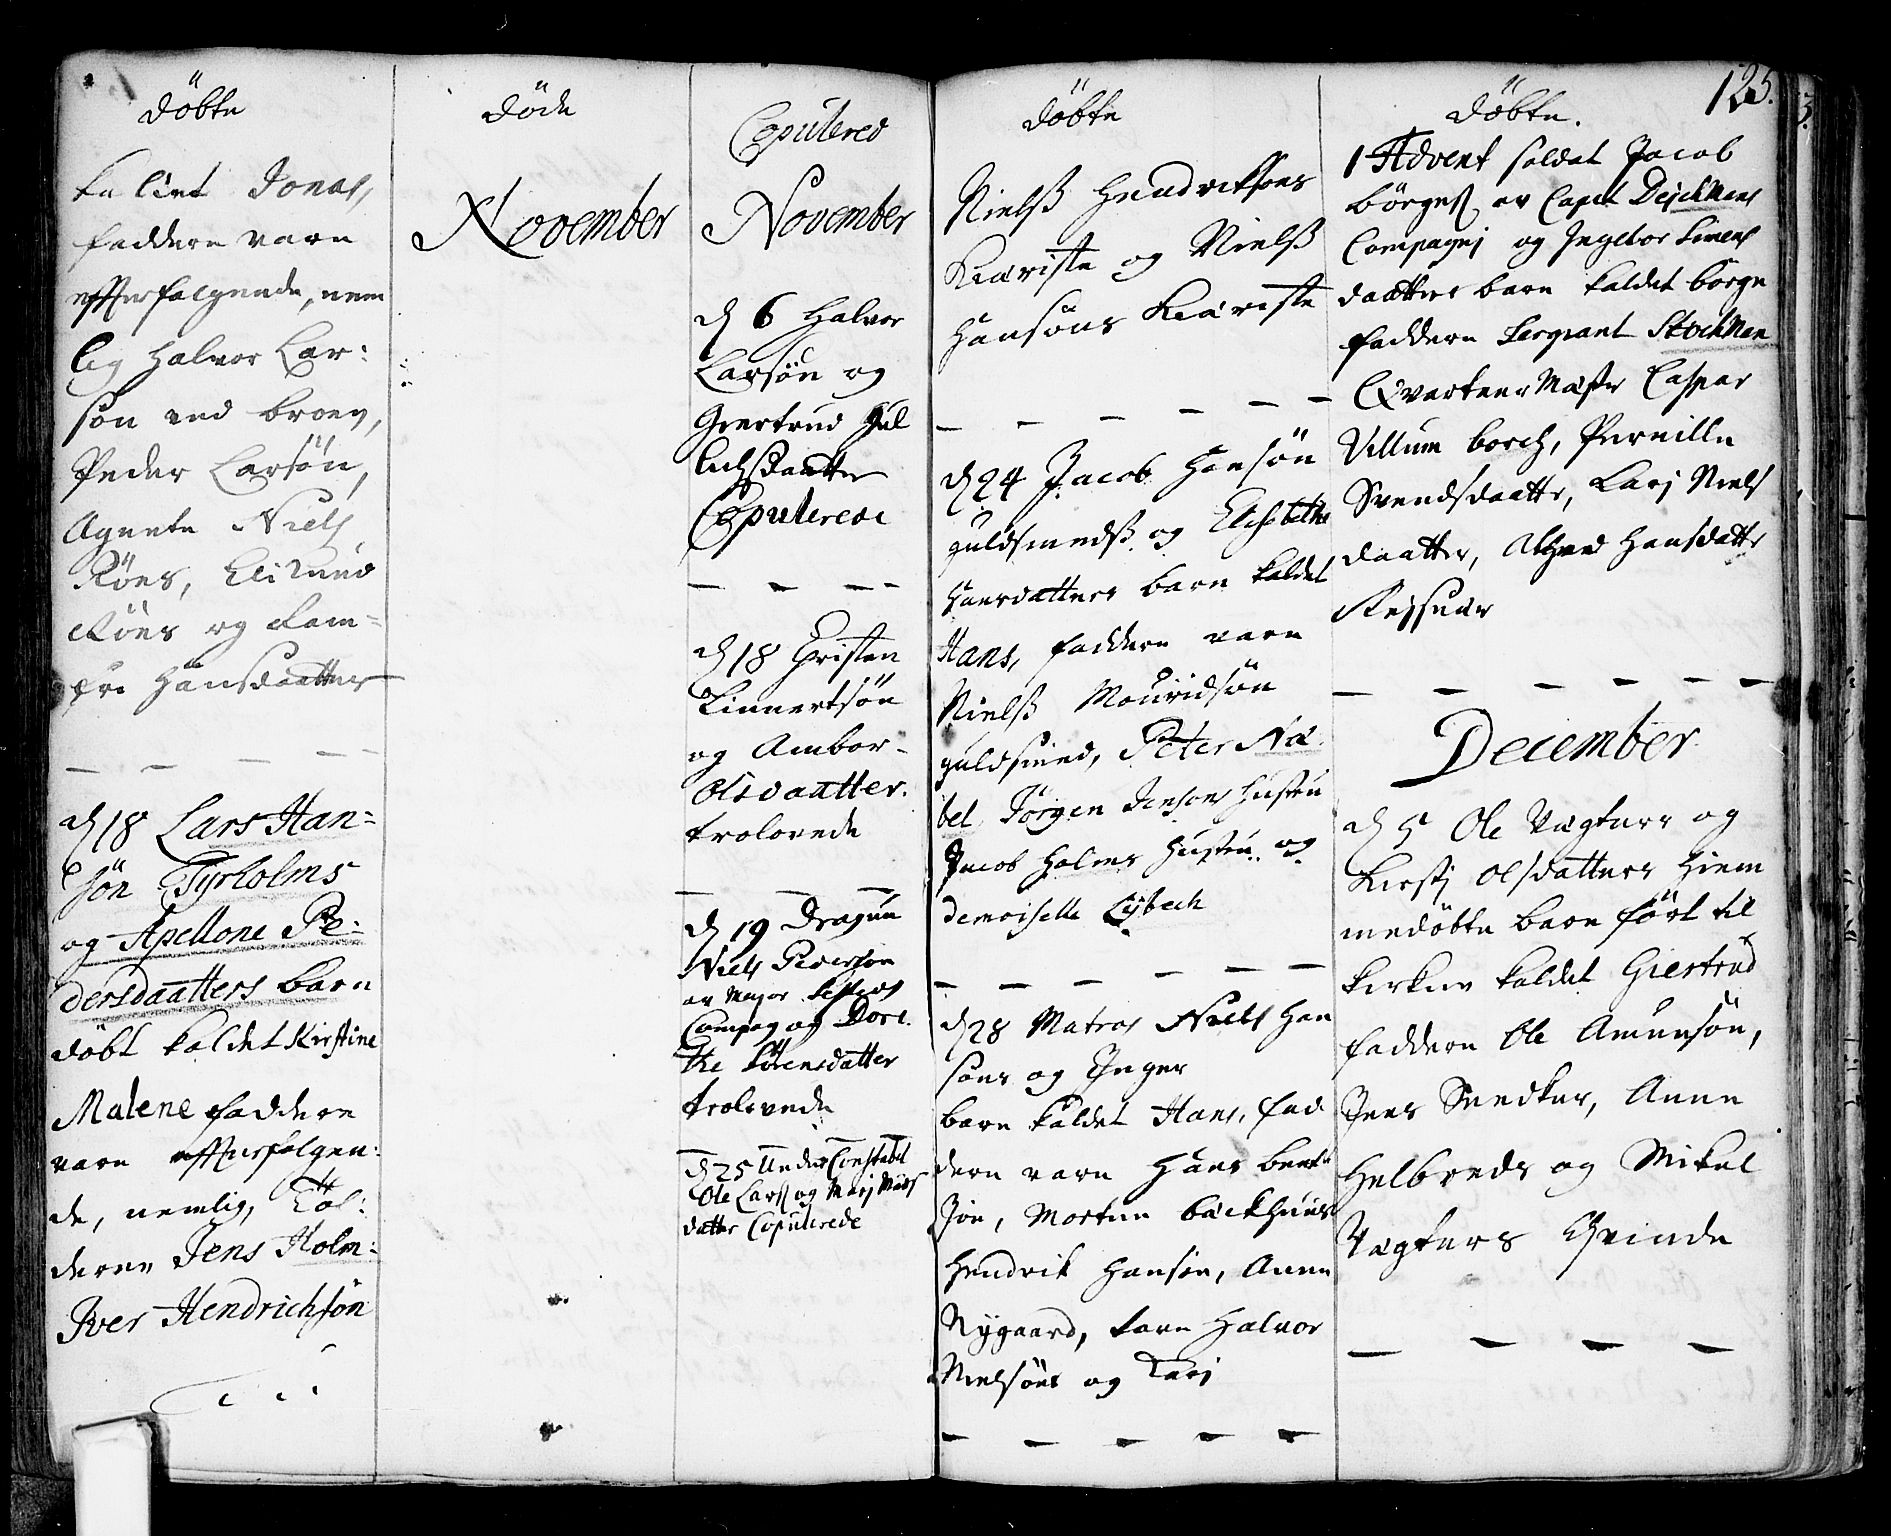 Döbte
kaldet Jonas,
faddere vare
efterfølgende, nem
lig Halvor Lar:
søn ved broen,
Peder Larsön,
Agnete Niels
Röes,
Röes og
Hansdaatter
d 18 Lars Han=
sön Tyrholms
og Apellone Pe:
dersdaatters barn
döbt kaldet Kirstine
Malene faddere
vare efterfølgen:
de, nemlig, Tol:
deren Jens Holm:
Iver Hendrichsön
Döde
November
Copulered
November
d 6 Halvor
Larsön og
Giertrud Gul
lichsdaatter
Copulerede
d 18 Christen
Linnertsön
og Ambor-
Olsdaatter.
trolovede
d 19 Dragun
Niels Pedersön
av Major
Compag og Dore.
the Sörensdatter
trolovede
d 25 Under Constabel
Ole Larss og Marj Niels
datter Copulerede
Döbte
Niels Hendrichsøns
Kieriste og Niels
Hansöns Kieriste
d 24 Jacob Hansön
guldsmeds og Elisabethe
Hansdatters barn kaldet
Hans, faddere vare
Niels Mouridsön
guldsmed, Peter Na
bel Jörgen Jensøns Hustru
Jacob Holms Hustru og
demoiselle Lybech
d 28 Matros Niels Han
söns og Inger
barn kaldet Hans, fad
dere vare Hans bent
sön, Morten backhuus
Hendrik Hansön, Anne
Nygaard, Halvor
Nielsöns og Karj
125.
Döbte.
1 Advent soldat Jacob
börges av Capit Deichmans
Compagnj og Ingebor Simens
daatters barn kaldet börge
faddere Sergeant Stockman
Qvarteer Mester Casper
Villum borch, Pernille
Svendsdaatter, Karj Niels
daatter, Hansdatter
December
d 5 Ole Vægters og
Kirstj Olsdatters Hiem
medöbte barn fört til
kirken kaldet Giertrud
faddere Ole Amunsön,
Jens Snedker, Anne
Helbreds og Mikel
Vægters Qvinde